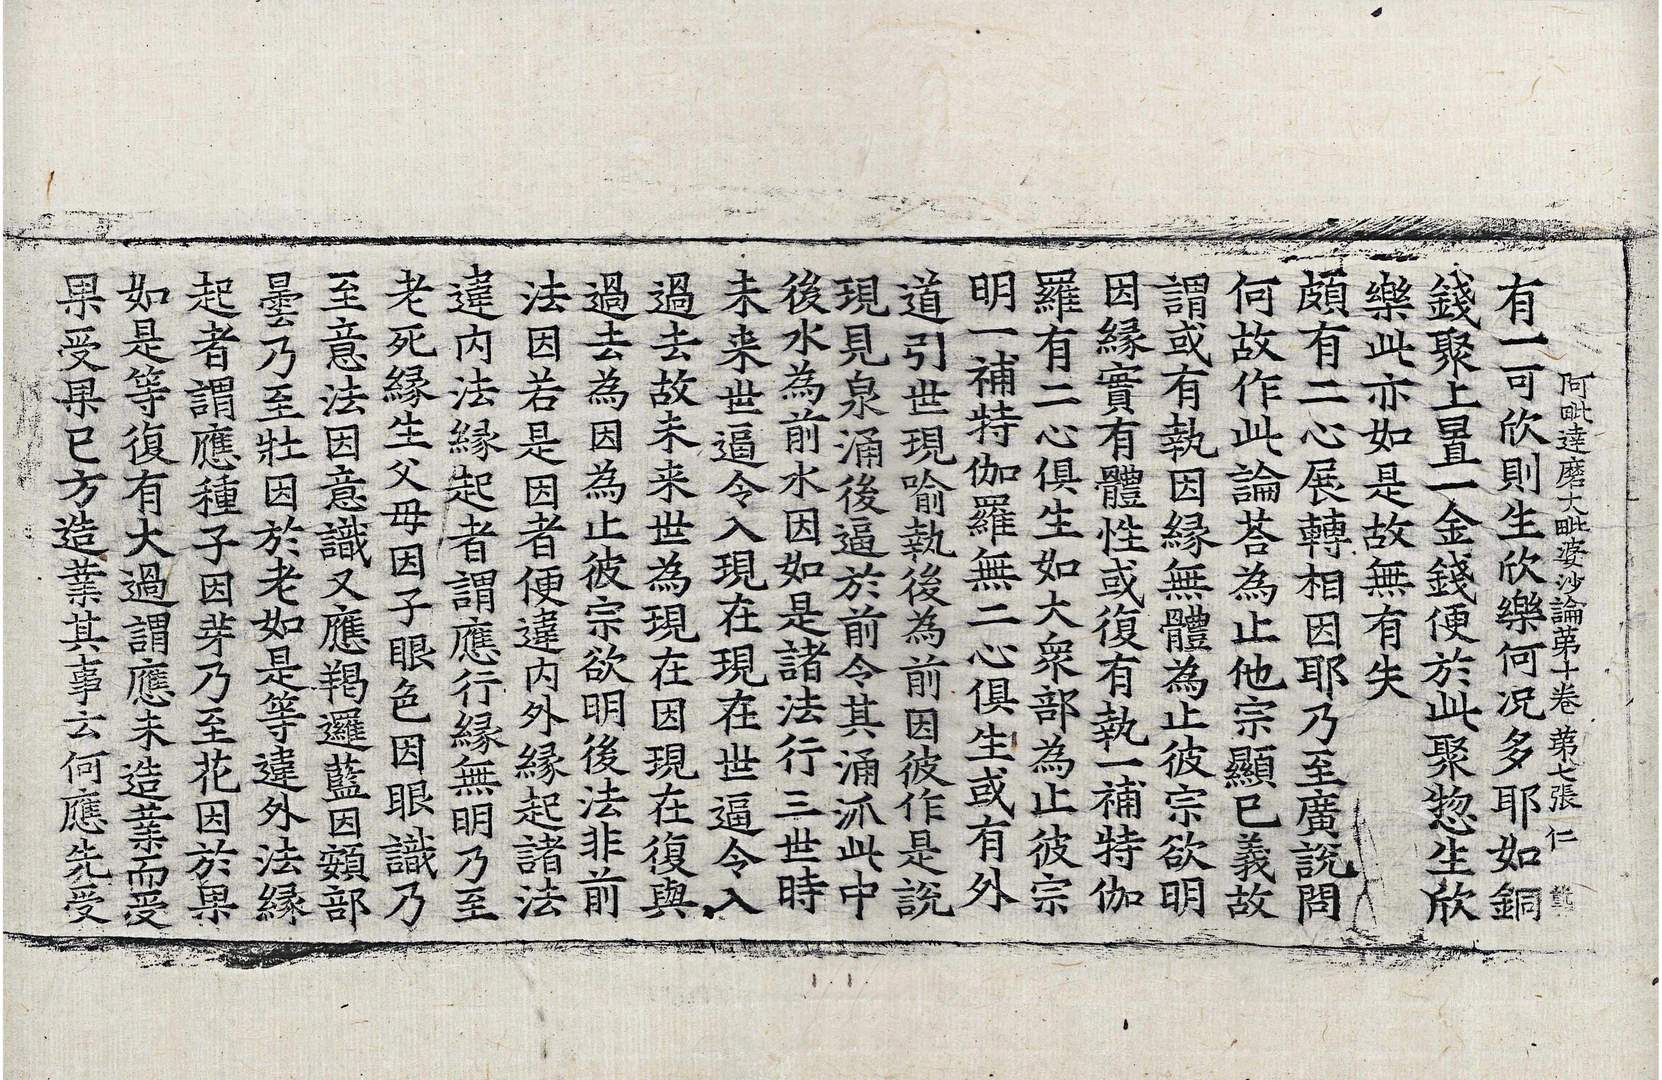 阿毗達磨大毗婆沙論第十卷 第七張 仁
有一可欣則生欣樂何况多耶如銅
錢聚上置一金錢便於此聚惣生欣
樂此亦如是故無有失
頗有二心展轉相因耶乃至廣說問
何故作此論荅為止他宗顯已義故
謂或有執因緣無體為止彼宗欲明
因緣實有體性或復有執一補特伽
羅有二心俱生如大衆部為止彼宗
明一補特伽羅無二心俱生或有外
道引世現喻執後為前因彼作是說
現見泉涌後逼於前令其涌泒此中
後水為前水因如是諸法行三世時
未来世逼令入現在現在世逼令入
過去故未来世為現在因現在復與
過去為因為止彼宗欲明後法非前
法因若是因者便違内外緣起諸法
違内法緣起者謂應行緣無明乃至
老死緣生父母因子眼色因眼識乃
至意法因意識又應羯邏藍因頞部
曇乃至壯因於老如是等違外法緣
起者謂應種子因芽乃至花因於果
如是等復有大過謂應未造業而受
果受果已方造業其事云何應先受